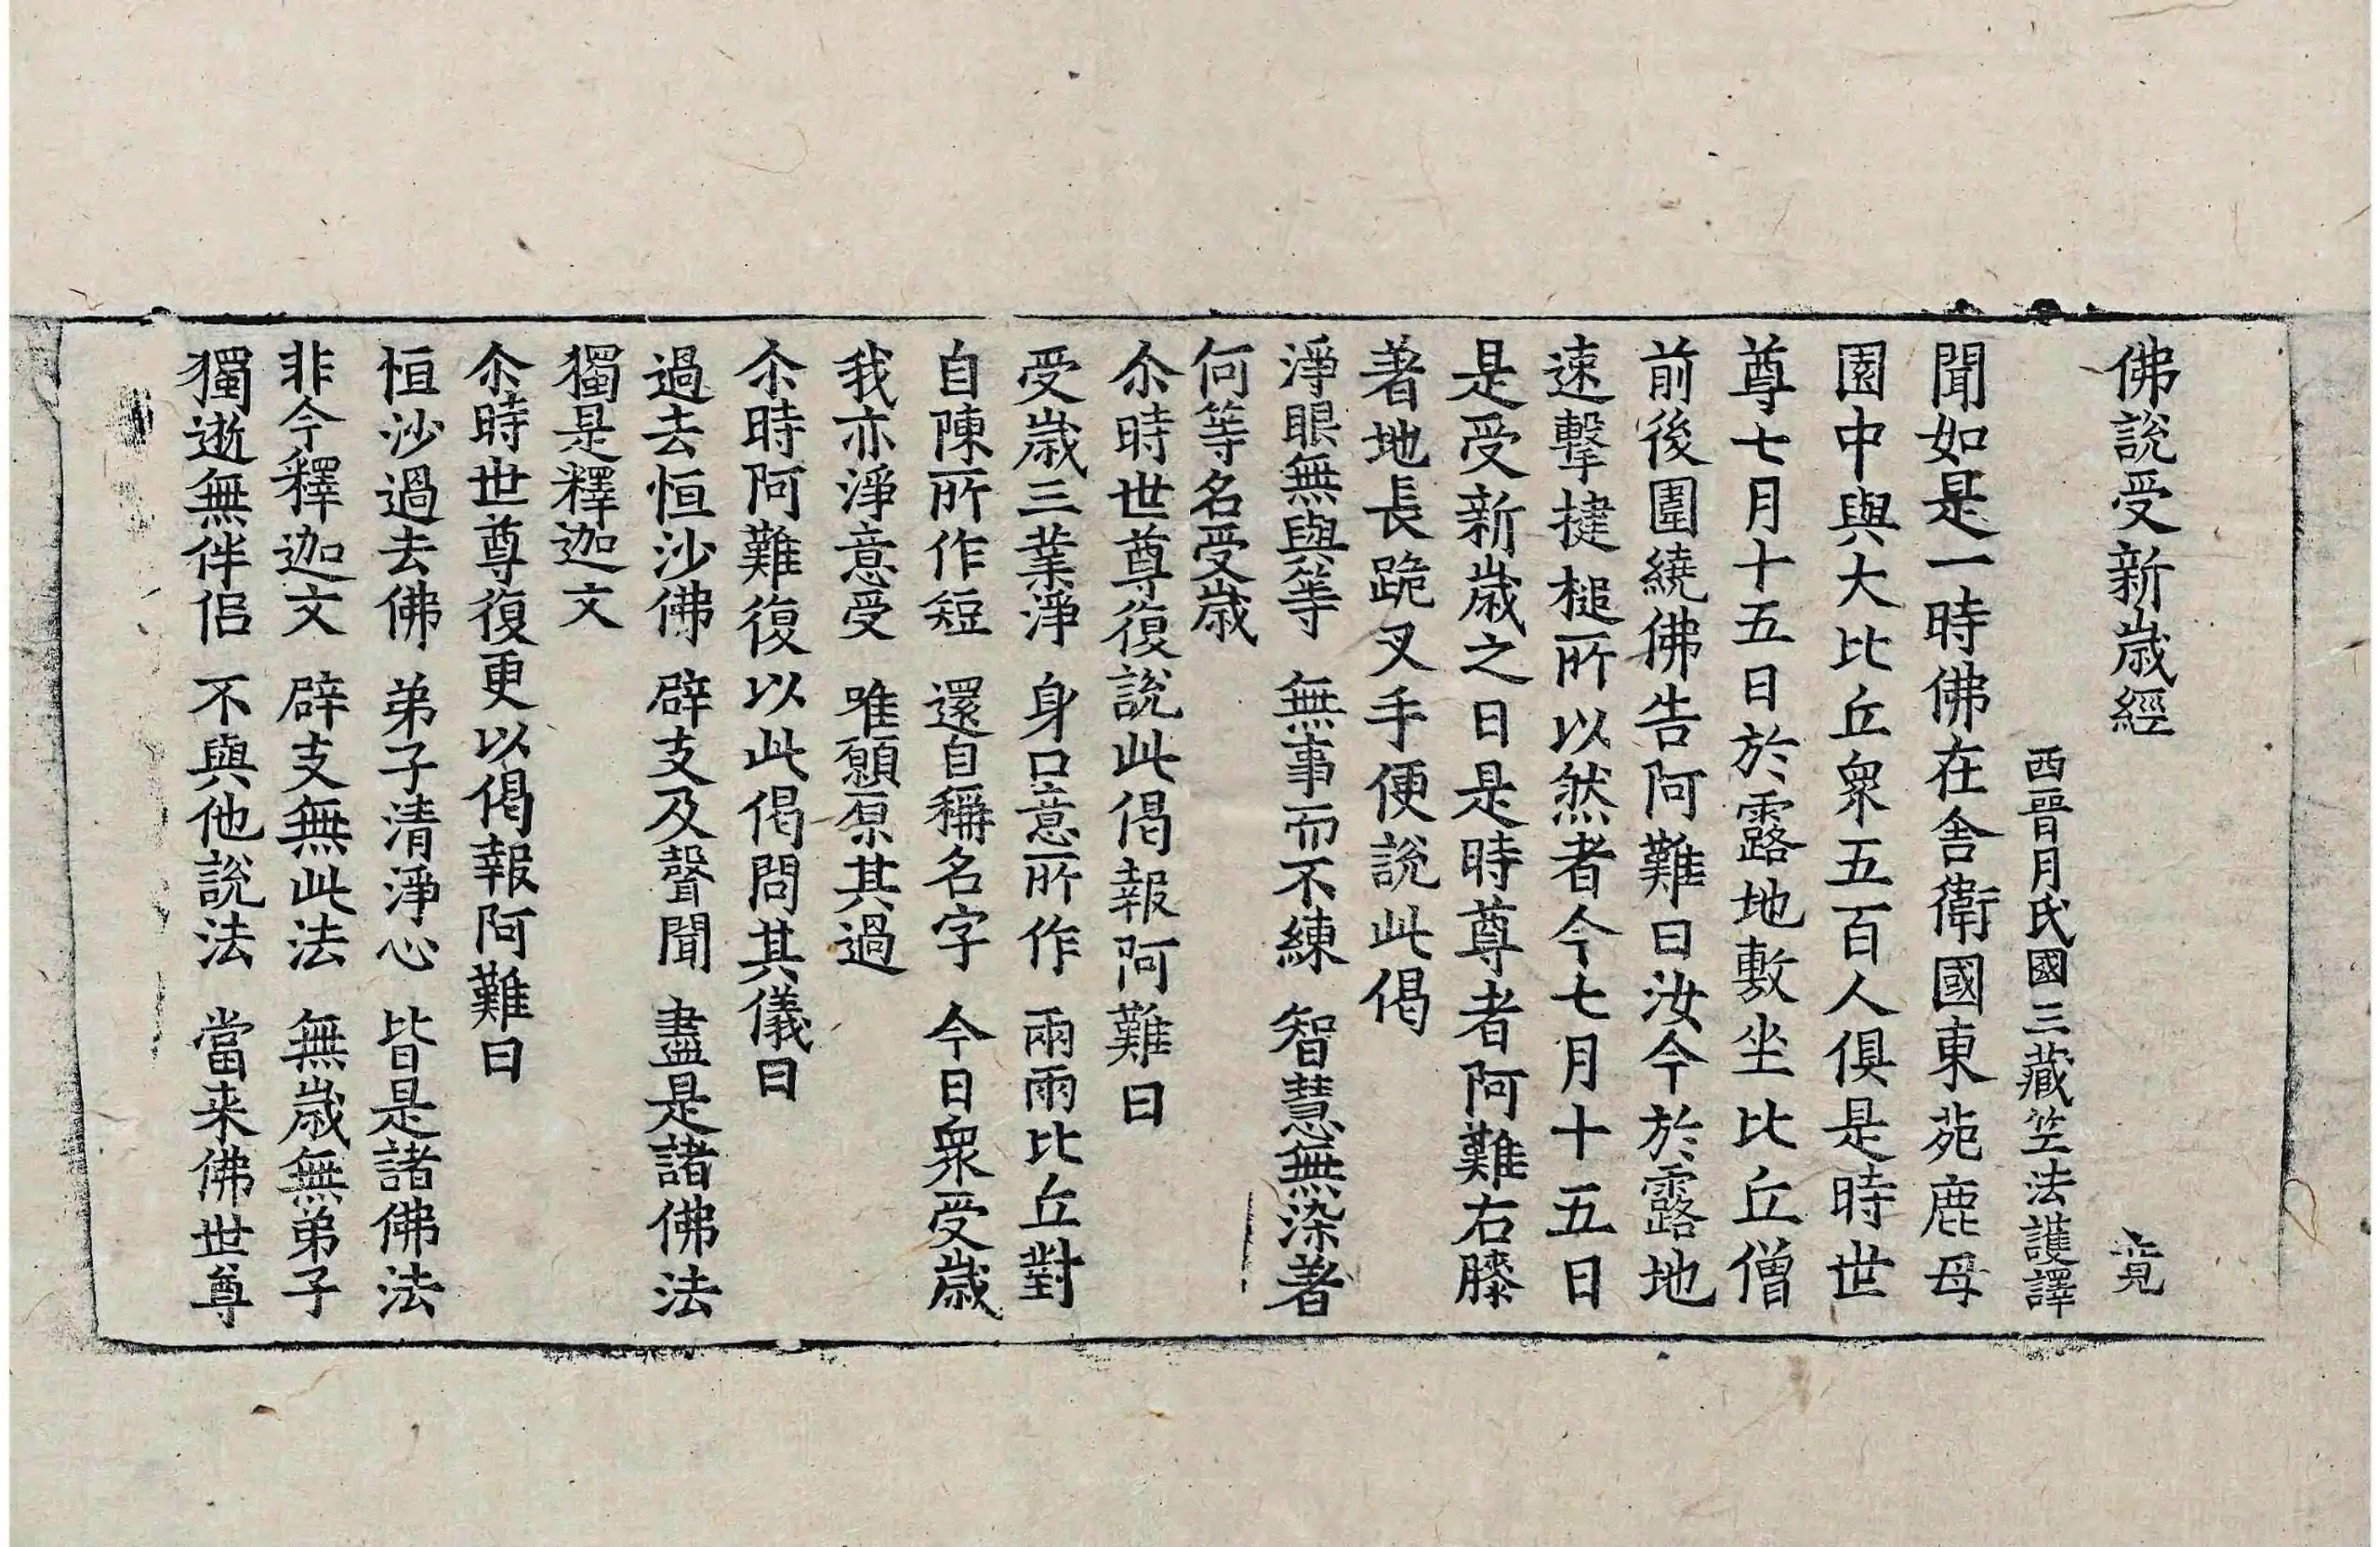 佛說受新歲經 竟
西晉月氏國三藏竺法護譯
聞如是一時佛在舍衛國東苑鹿母
園中與大比丘衆五百人俱是時世
尊七月十五日於露地敷坐比丘僧
前後圍繞佛告阿難曰汝今於露地
速擊揵槌所以然者今七月十五日
是受新歲之日是時尊者阿難右膝
著地長跪叉手便說此偈
淨眼無與等 無事而不練 智慧無染著
何等名受歲
尒時世尊復說此偈報阿難曰
受歲三業淨 身口意所作 兩兩比丘對
自陳所作短 還自稱名字 今日衆受歲
我亦淨意受 唯願原其過
尒時阿難復以此偈問其儀曰
過去恒沙佛 辟支及聲聞 盡是諸佛法
獨是釋迦文
尒時世尊復更以偈報阿難曰
恒沙過去佛 弟子清淨心 皆是諸佛法
非今釋迦文 辟支無此法 無歲無弟子
獨逝無伴侶 不與他說法 當来佛世尊